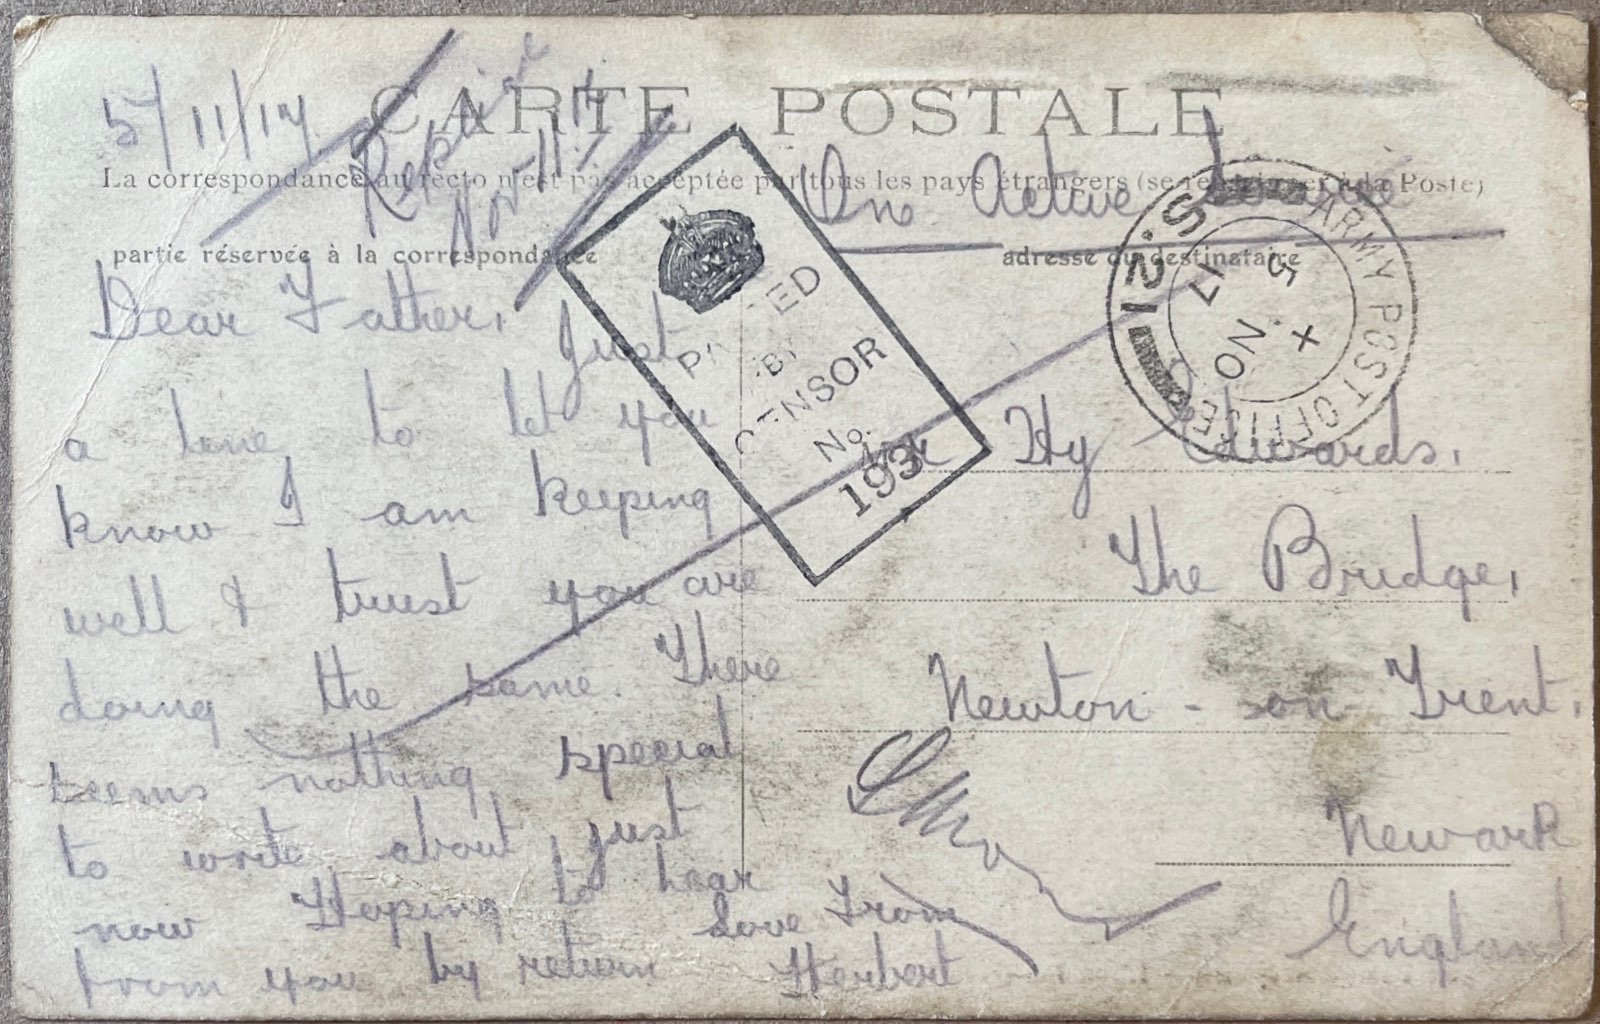 CARTE POSTALE
5/11/17.
Replied
Nov 11. 17
La correspondance au recto n'est pas acceptée par tous les pays étrangers (se renseigner à la Poste)
On Active Service
partie réservée à la correspondance
adresse du destinataire
Dear Father, Just
a line to let you
know I am keeping
well & trust you are
doing the same. There
seems nothing special
to write about just
now Hoping to hear
from you by return
Love From
Herbert
PASSED
BY
CENSOR
No.
193
ARMY POST OFFICE
S.21
X
5 NO
17
Mr Hy Edwards.
The Bridge,
Newton - on - Trent.
Newark
England